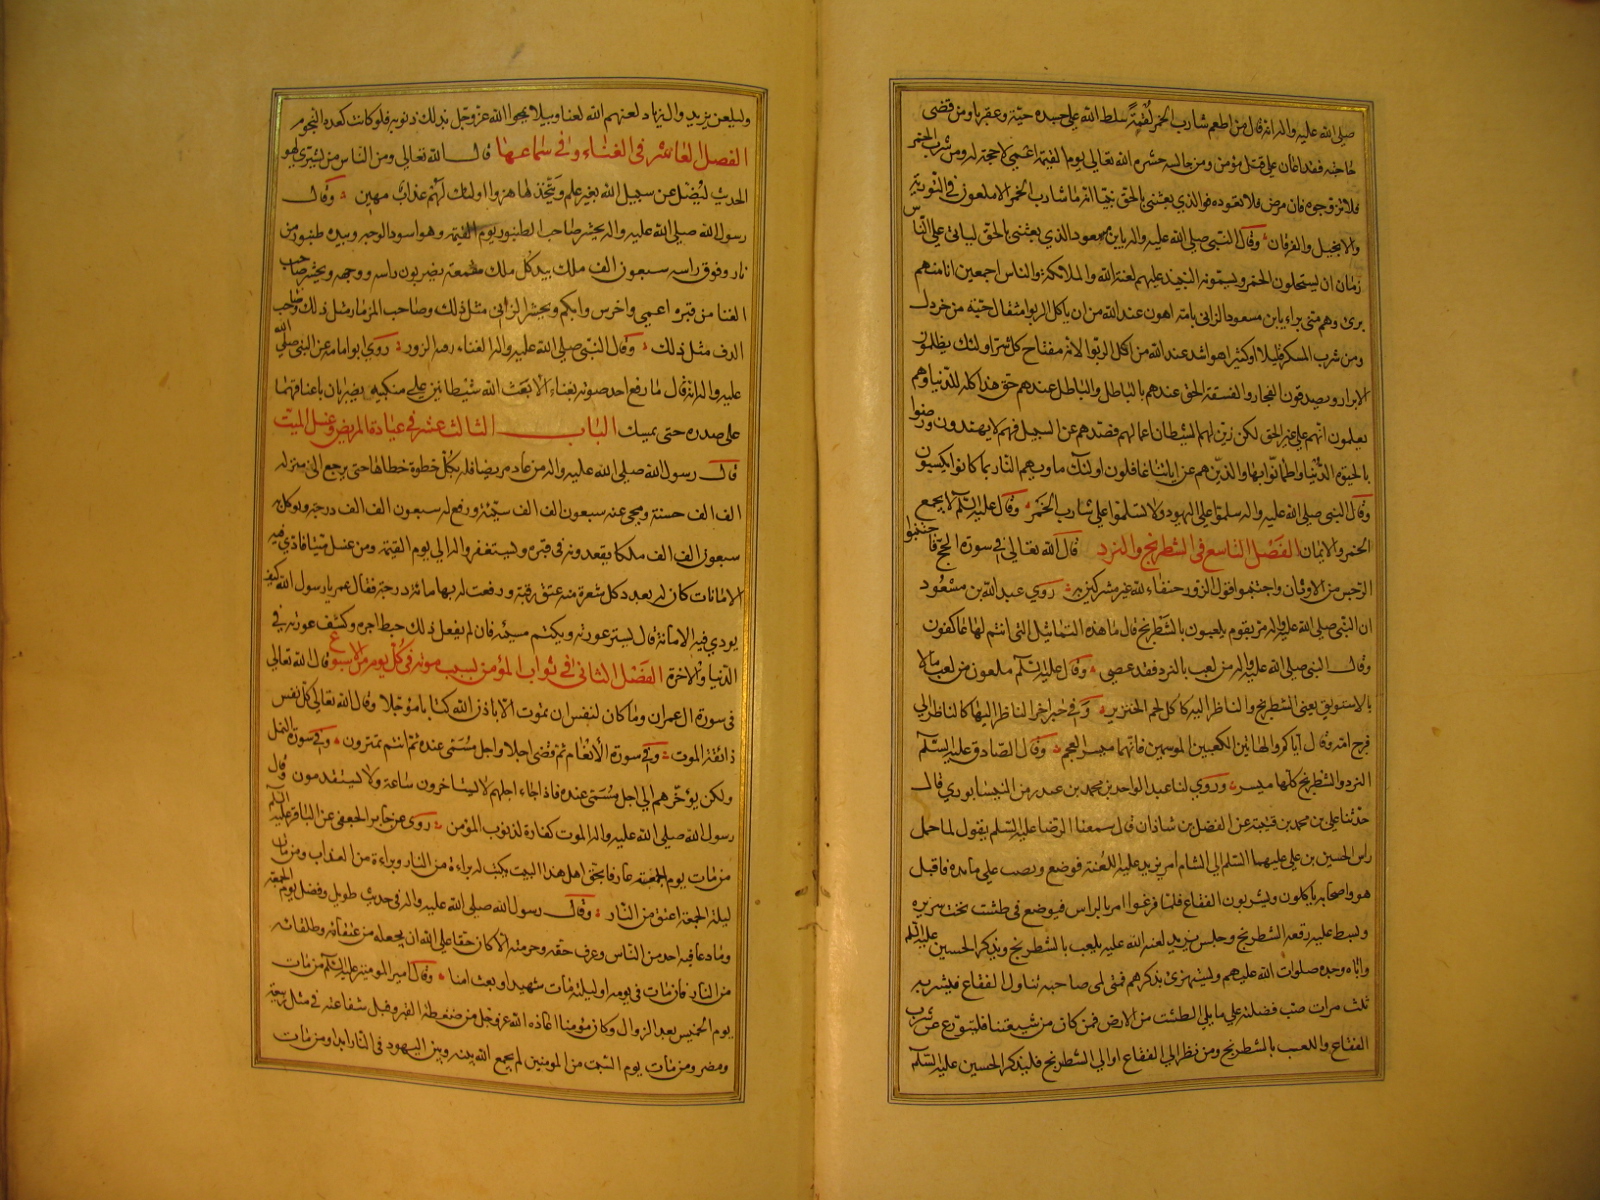 صلى الله عليه واله انه قال من اطعم شارب الخمر لقمةً سلط الله على جسده حية وعقربا ومن قضى
حاجته فقد اعان على قتل مؤمن ومن جالسه حشره الله تعالى يوم القيمة اعمى لا حجة له ومن شرب الخمر
فلا تزوجوه فان مرض فلا تعودوه فوالذي بعثني بالحق نبيا انه ما شارب الخمر الا ملعون في التورية
والانجيل والفرقان وقال النبي صلى الله عليه واله يابن مسعود والذي بعثني بالحق لياتي على الناس
زمان ان يستحلون الخمر ويسمونه النبيذ عليهم لعنة الله والملائكة والناس اجمعين انا منهم
برئ وهم مني براء يابن مسعود الزاني بامه اهون عند الله من ان ياكل الربوا مثقال حبة من خردل
ومن شرب المسكر قليلا او كثيرا هو اشد عند الله من اكل الربوا لانه مفتاح كل شر اولئك يظلمون
الابرار ويصدقون الفجار والفسقة الحق عندهم بالباطل والباطل عندهم حق هذا كله للدنيا وهم
يعلمون انهم على غير الحق لكن زين لهم الشيطان اعمالهم فصدهم عن السبيل فهم لا يهتدون ورضوا
بالحيوة الدنيا واطمانوا بها والذين هم عن اياتنا غافلون اولئك ماويهم النار بما كانوا يكسبون
وقال النبي صلى الله عليه واله سلموا على اليهود ولا تسلموا على شارب الخمر وقال عليه السلم لا يجمع
الخمر والايمان الفصل التاسع في الشطرنج والنرد قال الله تعالى في سورة الحج فاجتنبوا
الرجس من الاوثان واجتنبوا قول الزور حنفاء لله غير مشركين به روي عبد الله بن مسعود
ان النبي صلى الله عليه واله مر بقوم يلعبون بالشطرنج قال ما هذه التماثيل التي انتم لها عاكفون
وقال النبي صلى الله عليه واله من لعب بالنرد فقد عصى وقال عليه السلم ملعون من لعب
بالاستريق يعني الشطرنج والناظر اليه كاكل لحم الخنزير وفي خبر اخر الناظر اليها كالناظر الى
فرج امه وقال اياكم وهاتين الكعبين الموسومين فانهما ميسر العجم وقال الصادق عليه السلم
النرد والشطرنج كلها ميسر وروي لنا عبد الواحد بن محمد بن عبدوس النيسابوري قال
حدثنا علي بن محمد بن قتيبة عن الفضل بن شاذان قال سمعنا الرضا عليه السلم يقول لما حمل
راس الحسين بن علي عليهما السلم الى الشام امر يزيد عليه اللعنة فوضع ونصب على مائدة فاقبل
هو واصحابه ياكلون ويشربون الفقاع فلما فرغوا امر بالراس فيوضع في طشت تحت سريره
وبسط عليه رقعة الشطرنج وجلس يزيد لعنه الله عليه يلعب بالشطرنج ويذكر الحسين عليه السلم
واباه وجده صلوات الله عليهم ويستهزئ بذكرهم فمتى لمى صاحبه تناول الفقاع فيشربه
ثلث مرات صب فضلته على ما يلي الطشت من الارض فمن كان من شيعتنا فليتورع عن شرب
الفقاع واللعب بالشطرنج ومن نظر الى الفقاع او الى الشطرنج فليذكر الحسين عليه السلم
وليلعن يزيد وال زياد لعنهم الله لعنا وبيلا يمحوا الله عز وجل بذلك ذنوبه فلو كانت كعدد النجوم
الفصل العاشر في الغناء وفي سماعها قال الله تعالى ومن الناس من يشتري لهو
الحديث ليضل عن سبيل الله بغير علم ويتخذها هزوا اولئك لهم عذاب مهين وقال
رسول الله صلى الله عليه واله يحشر صاحب الطنبور يوم القيمة وهو اسود الوجه وبيده طنبور من
نار وفوق راسه سبعون الف ملك بيد كل ملك مقمعة يضربون راسه ووجهه ويحشر صاحب
الغنا من قبره اعمى واخرس وابكم ويحشر الزاني مثل ذلك وصاحب المزمار مثل ذلك وصاحب
الدف مثل ذلك وقال النبي صلى الله عليه واله الغناء رقية الزور روي ابو امامة عن النبي صلى الله
عليه واله انه قال ما رفع احد صوته بغناء الا بعث الله شيطانين على منكبيه يضربان باعقابهما
على صدره حتى يمسك الباب الثالث عشر في عيادة المريض وغسل الميت
قال رسول الله صلى الله عليه واله من عاد مريضا فله بكل خطوة خطاها حتى يرجع الى منزله
الف الف حسنة ومحي عنه سبعون الف الف سيئة ورفع له سبعون الف الف درجة ووكل به
سبعون الف الف ملكا يقعدونه في قبره ويستغفروا له الى يوم القيمة ومن غسل ميتا فادي فيه
الامانات كان له بعدد كل شعرة منه عتق رقبة ورفعت له بها مائة درجة فقال عمر يا رسول الله كيف
يودي فيه الامانة قال يستر عورته ويكتم سيئه فان لم يفعل ذلك حبط اجره وكشف عورته في
الدنيا والاخرة الفصل الثاني في ثواب المؤمن بسبب موته في كل يوم من الاسبوع قال الله تعالى
في سورة ال عمران وما كان لنفس ان تموت الا باذن الله كتابا مؤجلا وقال الله تعالى كل نفس
ذائقة الموت وفي سورة الانعام ثم قضى اجلا واجل مسمى عنده ثم انتم تمترون وفي سورة النحل
ولكن يؤخرهم الى اجل مسمى عنده فاذا جاء اجلهم لا يستاخرون ساعة ولا يستقدمون وقال
رسول الله صلى الله عليه واله الموت كفارة لذنوب المؤمن روى عن جابر الجعفي عن الباقر عليه السلم
من مات يوم الجمعة عارفا بحق اهل هذا البيت وكتب له براءة من النار وبراءة من العذاب ومن مات
ليلة الجمعة اعتق من النار وقال رسول الله صلى الله عليه واله في حديث طويل وفضل يوم الجمعة
وما دعا فيه احد من الناس وعرف حقه وحرمته الا كان حقا على الله ان يجعله من عتقائه وطلقائه
من النار فان مات في يومه او ليلته مات شهيدا وبعث امنا وقال امير المومنين عليه السلم من مات
يوم الخميس بعد الزوال وكان مؤمنا اعاذه الله عز وجل من ضغطة القبر وقبل شفاعته في مثل ربيعة
ومضر ومن مات يوم السبت من المومنين لم يجمع الله بينه وبين اليهود في النار ابدا ومن مات